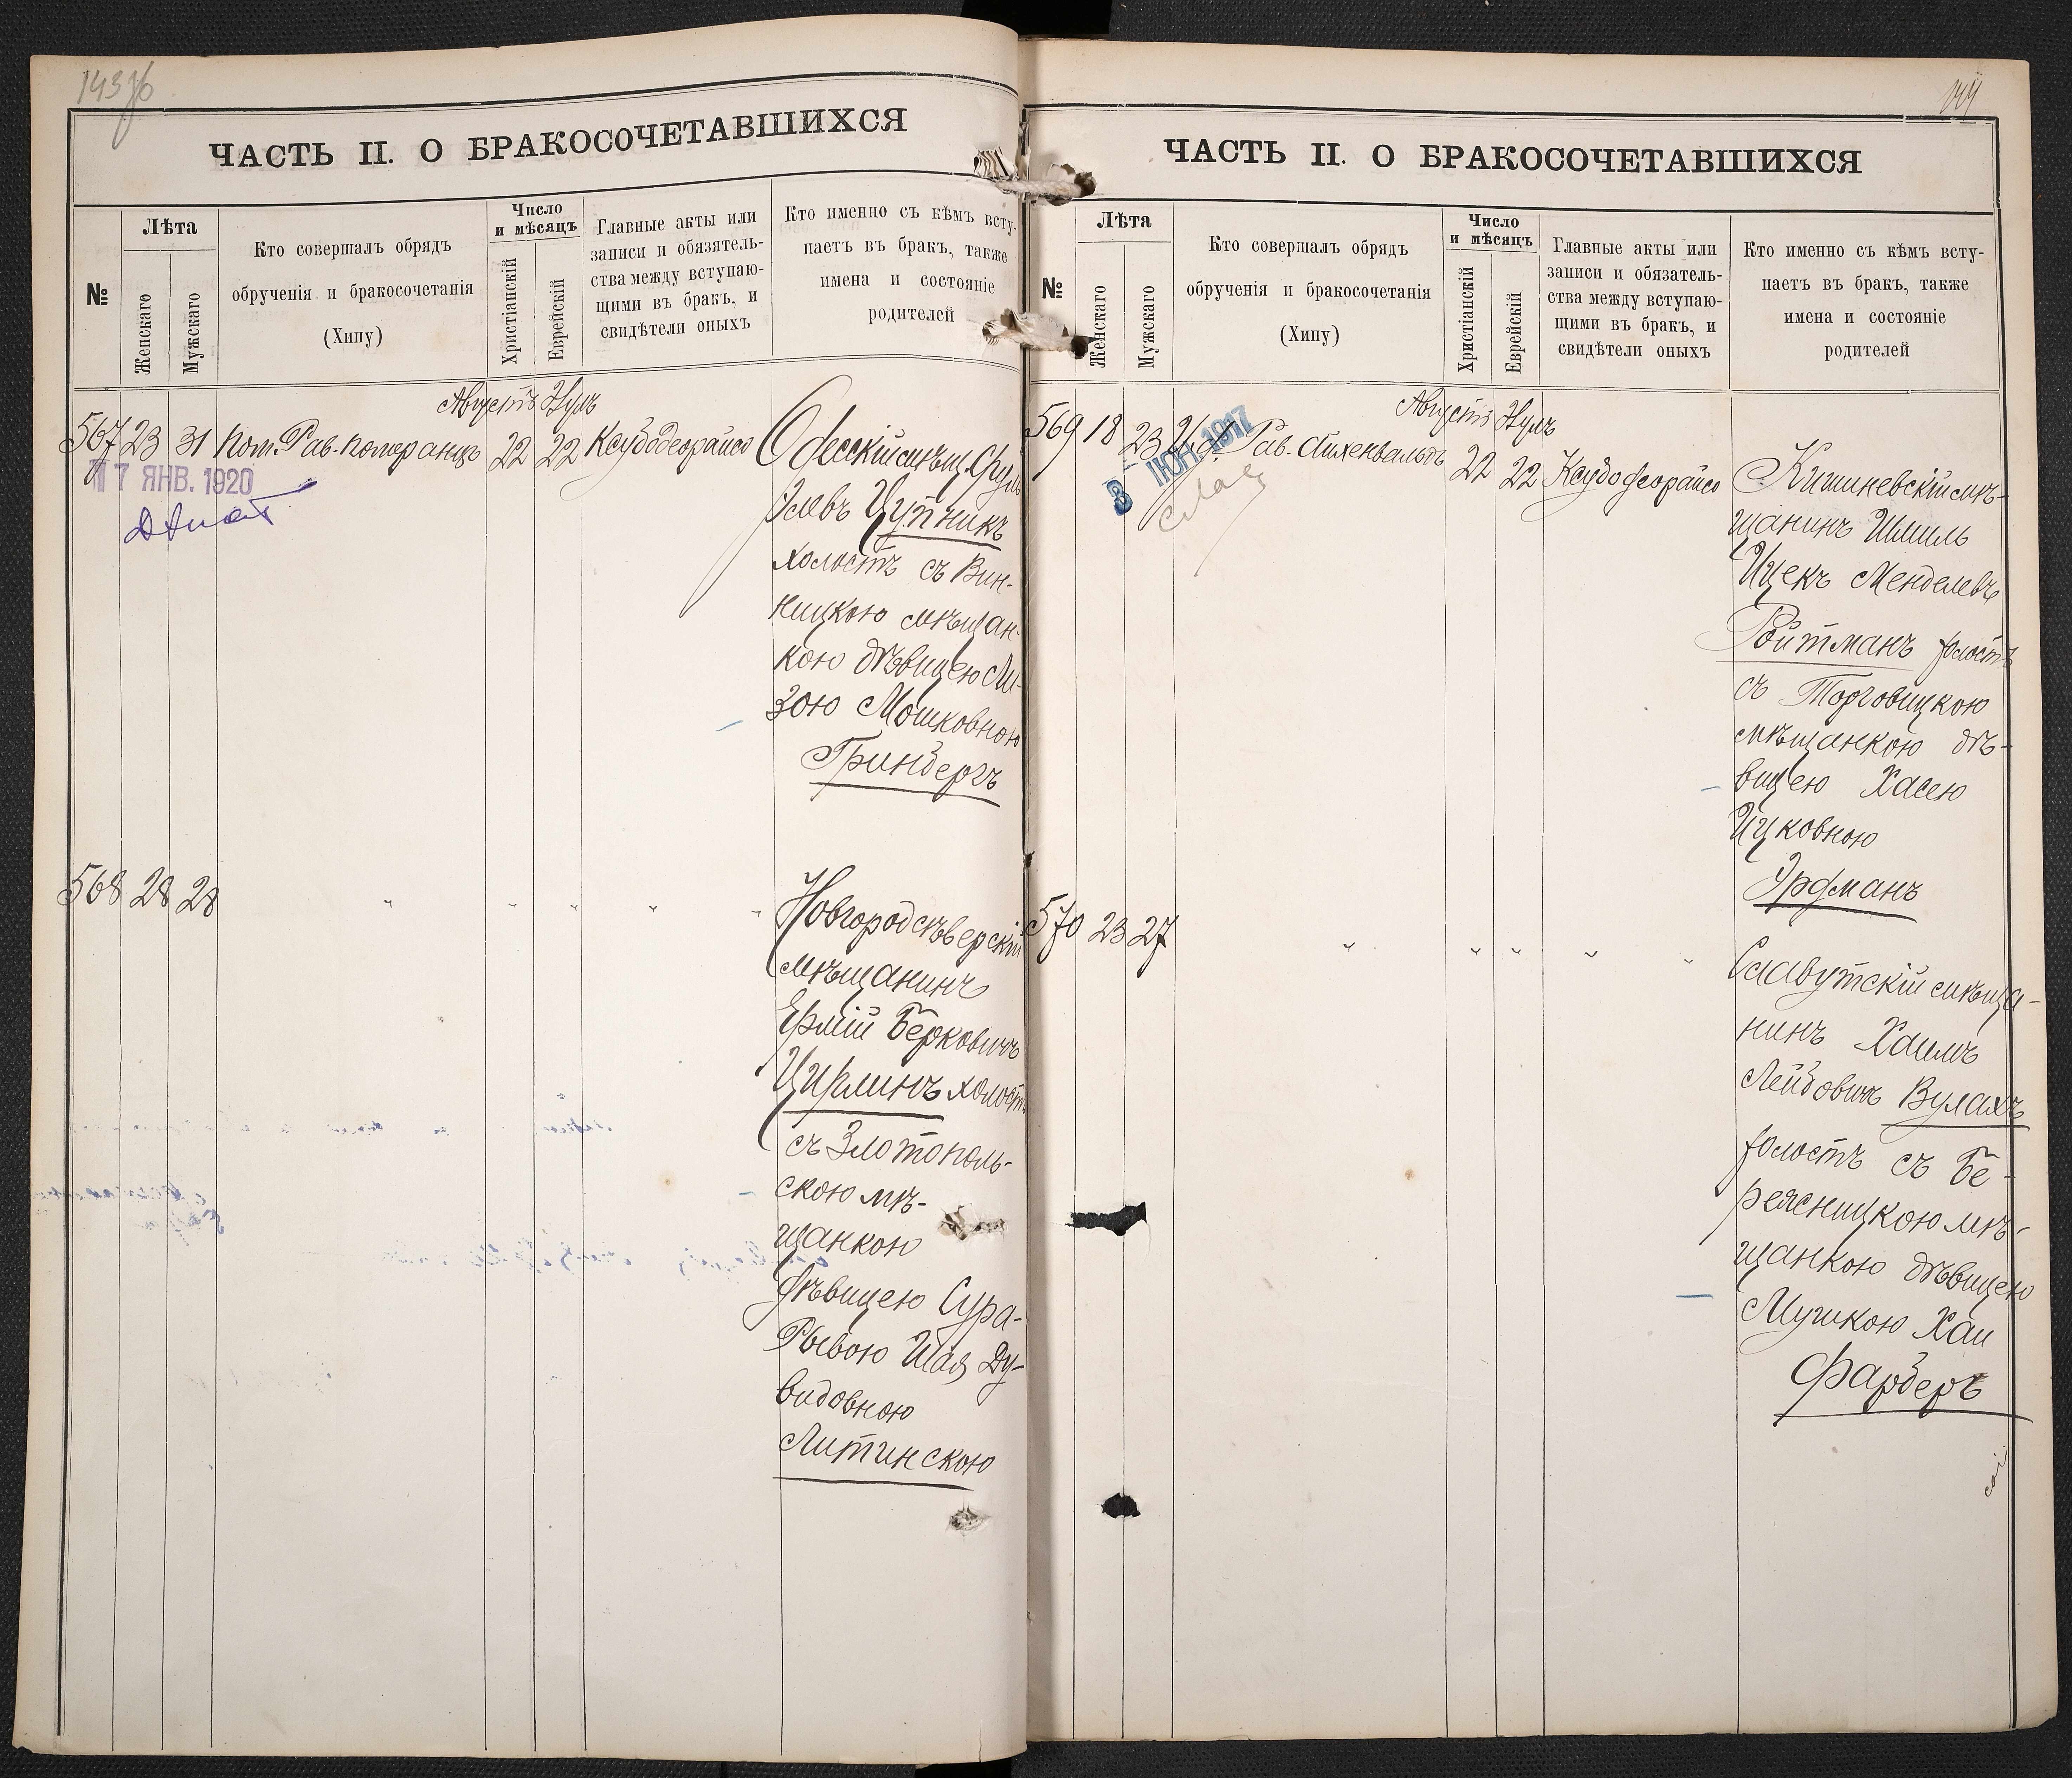 ЧАСТЬ II. О БРАКОСОЧЕТАВШИХСЯ
№
Лѣта
Женскаго
Мужскаго
Кто совершалъ обрядъ
обрученія и бракосочетанія
(Хипу)
Число
и мѣсяцъ
Христіанскій
Еврейскій
Главные акты или
записи и обязятель-
ства между вступаю-
щими въ бракъ, и
свидѣтели оныхъ
Кто именно съ кѣмъ всту-
паетъ въ бракъ, также
имена и состояніе
родителей
Августъ
567 23 31 Пом. Рав. Померанцъ 22 22
17 ЯНВ. 1920
Одесскій мѣщ.
Цупникъ
холостъ съ Вин-
ницкою мѣщан-
кою дѣвицею Ли-
зою Мошковною
Гринбергъ
568 28 28 " " " " "
Новгородсѣверскій
мѣщанинъ
Берковичъ
Цирлинъ холостъ
съ Златополь-
скою мѣ-
щанкою
дѣвицею Сура-
Рывою Шая Ду-
видовною
Литинскою
ЧАСТЬ II. О БРАКОСОЧЕТАВШИХСЯ
№
Лѣта
Женскаго
Мужскаго
Кто совершалъ обрядъ
обрученія и бракосочетанія
(Хипу)
Число
и мѣсяцъ
Христіанскій
Еврейскій
Главные акты или
записи и обязатель-
ства между вступаю-
щими въ бракъ, и
свидѣтели оныхъ
Кто именно съ кѣмъ всту-
паетъ въ бракъ, также
имена и состояніе
родителей
Августъ
569 18 23 И. д. Рав. Айхенвальдъ 22 22
3 ІЮН 1917
Кишиневскій мѣ-
щанинъ Шмиль
Ицекъ Менделевъ
Ройтманъ холостъ
съ Торговицкою
мѣщанкою дѣ-
вицею Хасею
Ицковною
Эрдманъ
570 23 27 " " " " "
Славутскій мѣща-
нинъ Хаимъ
Лейбовичъ Вулахъ
холостъ съ Бе-
реясницкою мѣ-
щанкою дѣвицею
Мушкою Хаи
Фарберъ